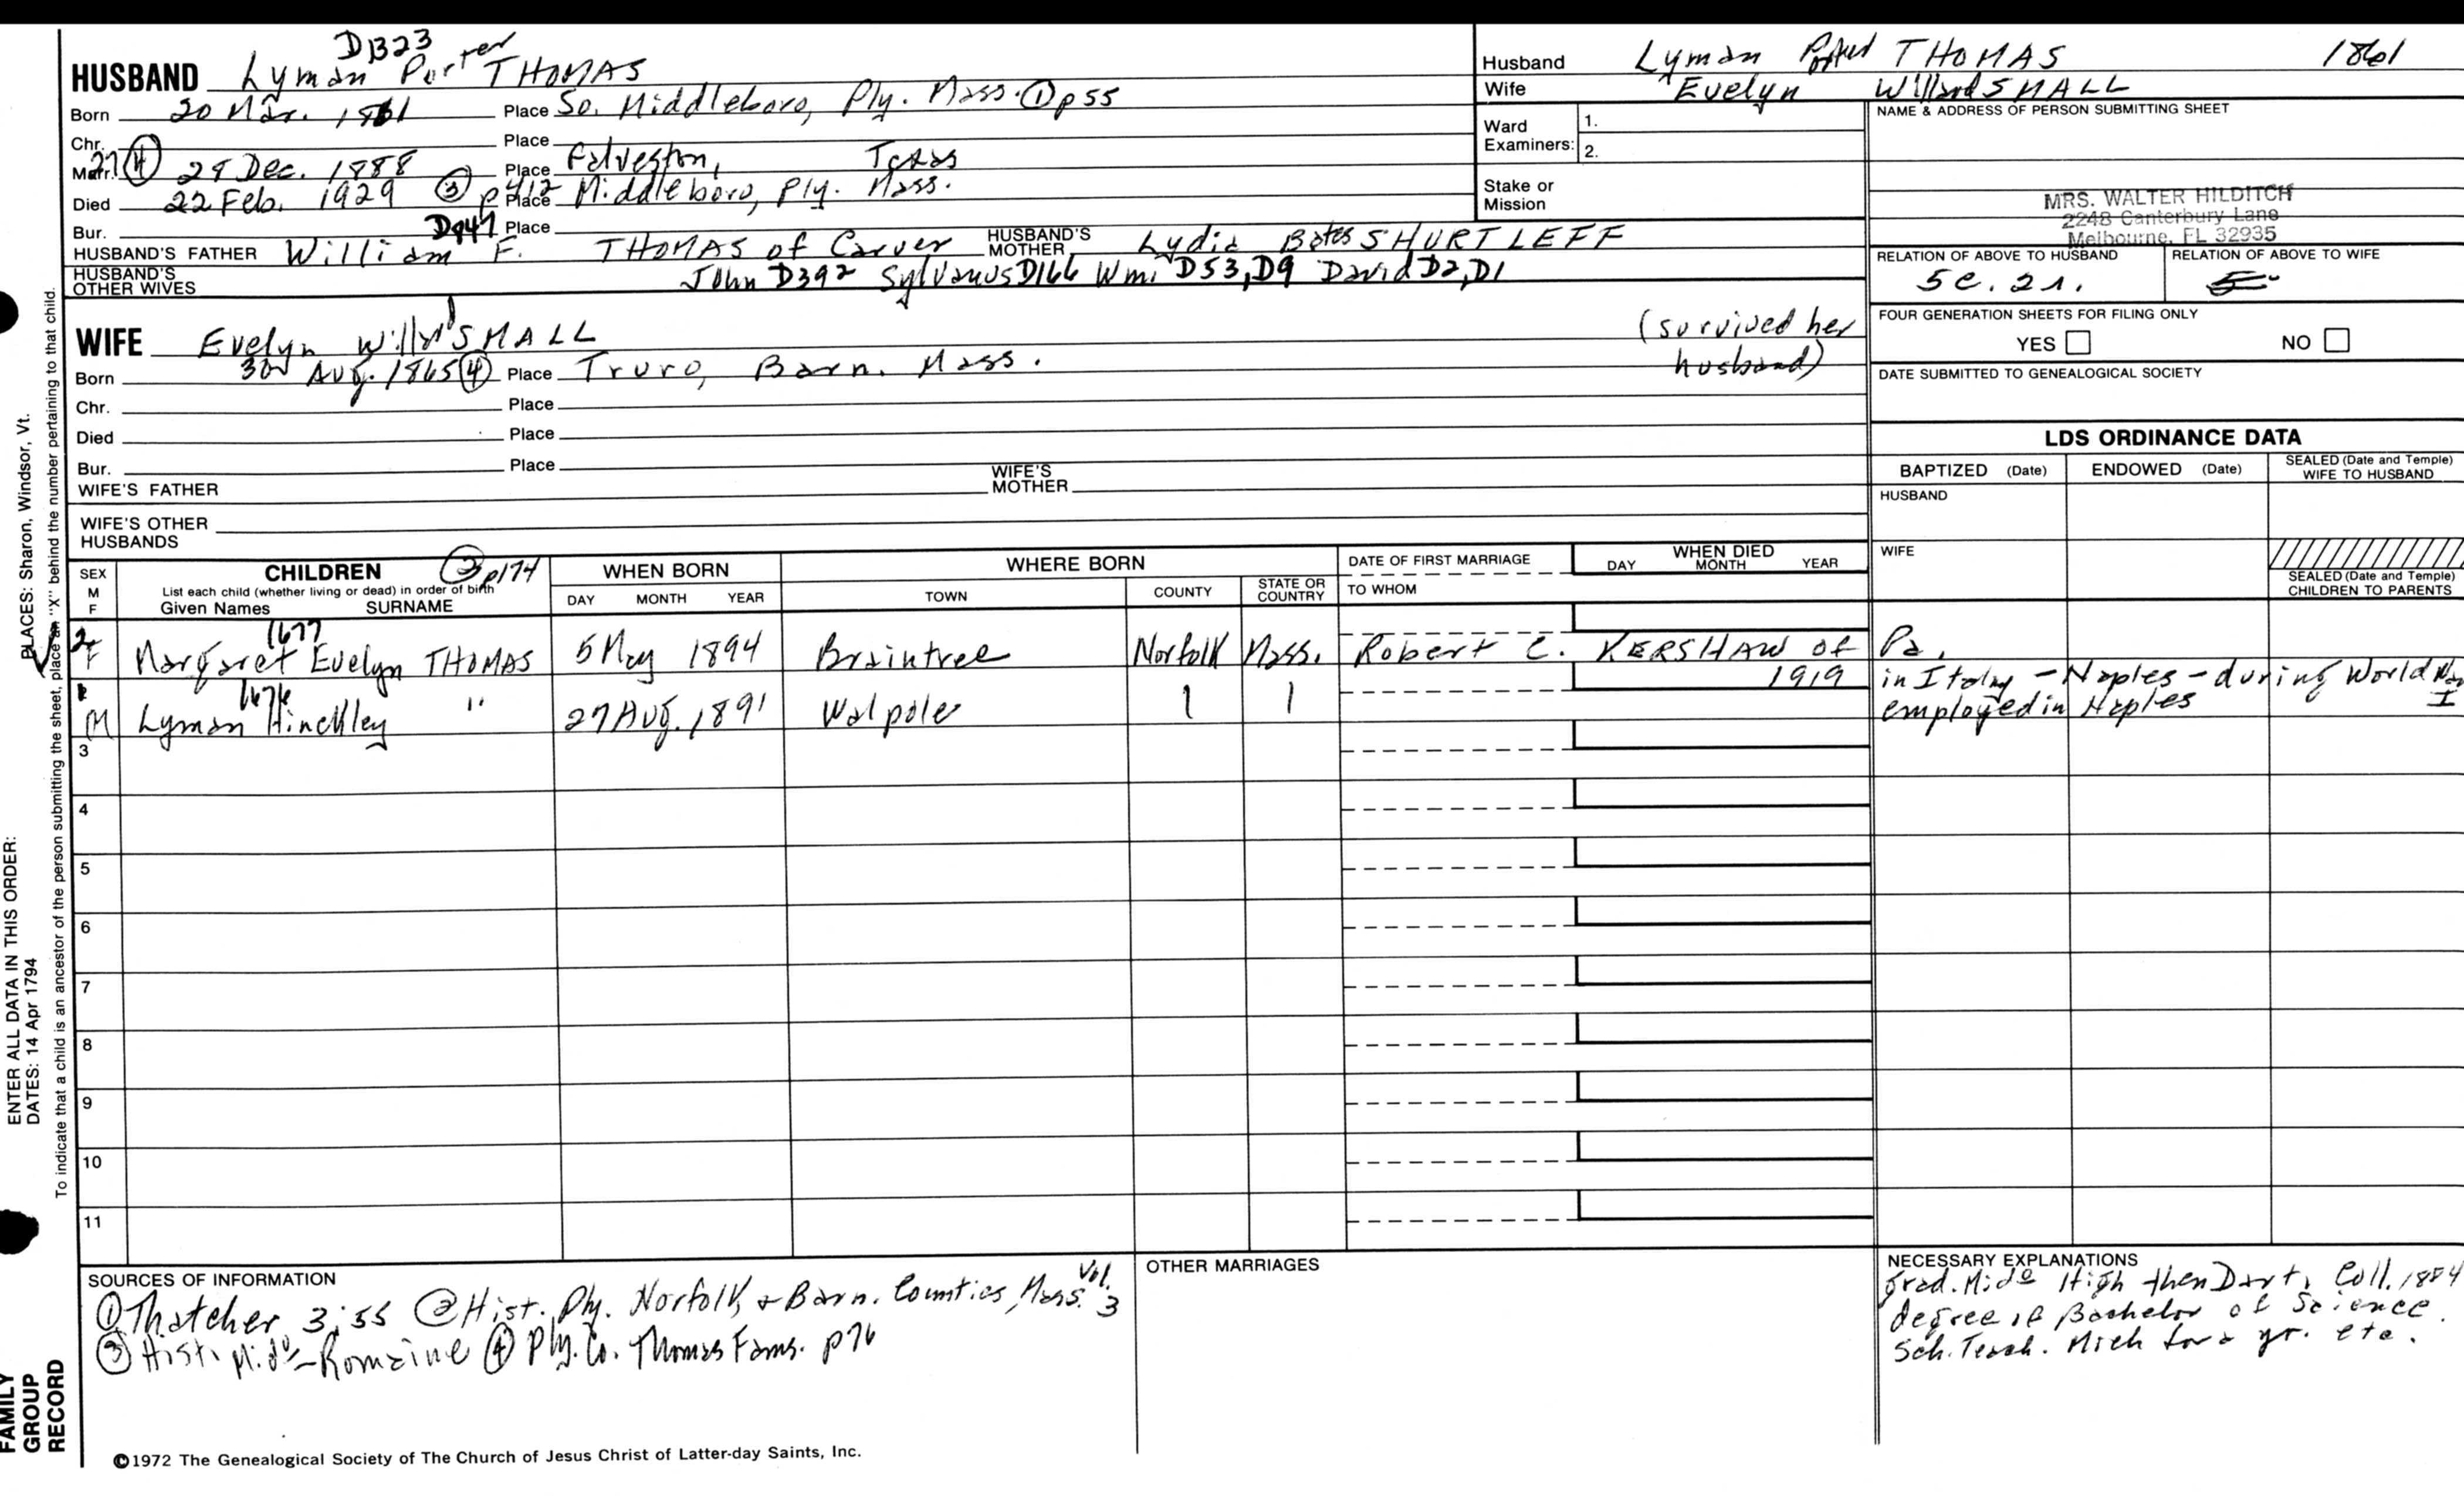 D1323
HUSBAND Lyman Porter THOMAS
Born 20 Mar. 1861 Place So. Middleboro, Ply. Mass. ① p55
Chr. Place
Marr. 27 ④ 28 Dec. 1888 Place Galveston, Texas
Died 22 Feb. 1929 ③ p412 Place Middleboro, Ply. Mass.
Bur. D947 Place
HUSBAND'S FATHER William F. THOMAS of Carver HUSBAND'S MOTHER Lydia Bates SHURTLEFF
HUSBAND'S OTHER WIVES John D392 Sylvanus D166 Wm. D53, D9 David D2, D1
Husband Lyman Porter THOMAS 1861
Wife Evelyn Willard SMALL
Ward Examiners: 1.
2.
Stake or Mission
NAME & ADDRESS OF PERSON SUBMITTING SHEET
MRS. WALTER HILDITCH
2248 Canterbury Lane
Melbourne, FL 32935
RELATION OF ABOVE TO HUSBAND RELATION OF ABOVE TO WIFE
5c. 2r.
FOUR GENERATION SHEETS FOR FILING ONLY
YES NO
DATE SUBMITTED TO GENEALOGICAL SOCIETY
WIFE Evelyn Willard SMALL (survived her
husband)
Born 30 Aug. 1865 ④ Place Truro, Barn. Mass.
Chr. Place
Died Place
Bur. Place
WIFE'S FATHER WIFE'S MOTHER
WIFE'S OTHER HUSBANDS
LDS ORDINANCE DATA
BAPTIZED (Date) ENDOWED (Date) SEALED (Date and Temple) WIFE TO HUSBAND
HUSBAND
WIFE
SEALED (Date and Temple) CHILDREN TO PARENTS
SEX M F CHILDREN ② p174 WHEN BORN WHERE BORN DATE OF FIRST MARRIAGE WHEN DIED
List each child (whether living or dead) in order of birth
Given Names SURNAME DAY MONTH YEAR TOWN COUNTY STATE OR COUNTRY TO WHOM DAY MONTH YEAR
1677
2 F Margaret Evelyn THOMAS 5 May 1894 Braintree Norfolk Mass. Robert C. KERSHAW of Pa.
1919 in Italy - Naples - during World War I
1676
1 M Lyman Hinckley " 27 Aug. 1891 Walpole employed in Naples
3
4
5
6
7
8
9
10
11
SOURCES OF INFORMATION
① Thatcher 3:55 ② Hist. Ply. Norfolk, & Barn. Counties, Mass. Vol. 3
③ Hist. Mido-Romaine ④ Ply. Co. Thomas Fams. p76
OTHER MARRIAGES
NECESSARY EXPLANATIONS
Grad. Mido High then Dart. Coll. 1884
degree of Bachelor of Science.
Sch. Teach. Mich for a yr. etc.
©1972 The Genealogical Society of The Church of Jesus Christ of Latter-day Saints, Inc.
FAMILY GROUP RECORD
ENTER ALL DATA IN THIS ORDER:
DATES: 14 Apr 1794
PLACES: Sharon, Windsor, Vt.
To indicate that a child is an ancestor of the person submitting the sheet, place an "X" behind the number pertaining to that child.